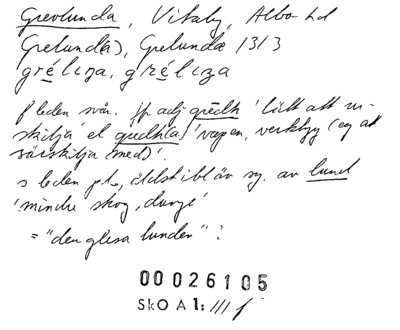 Grevlunda, Vitaby, Albo hd
Grelunda), Grelunda 1313
gréliņa, gréliņa
f leden svår. Jfr adj grēdh 'lätt att ur-
skilja' el grēdhia 'vapen, verktyg (eg att
särskilja med)'.
s leden pl., äldst ibl av sg. av lund
'mindre skog, dunge'
= "den glesa lunden"?
00026105
SkO A 1: /// f